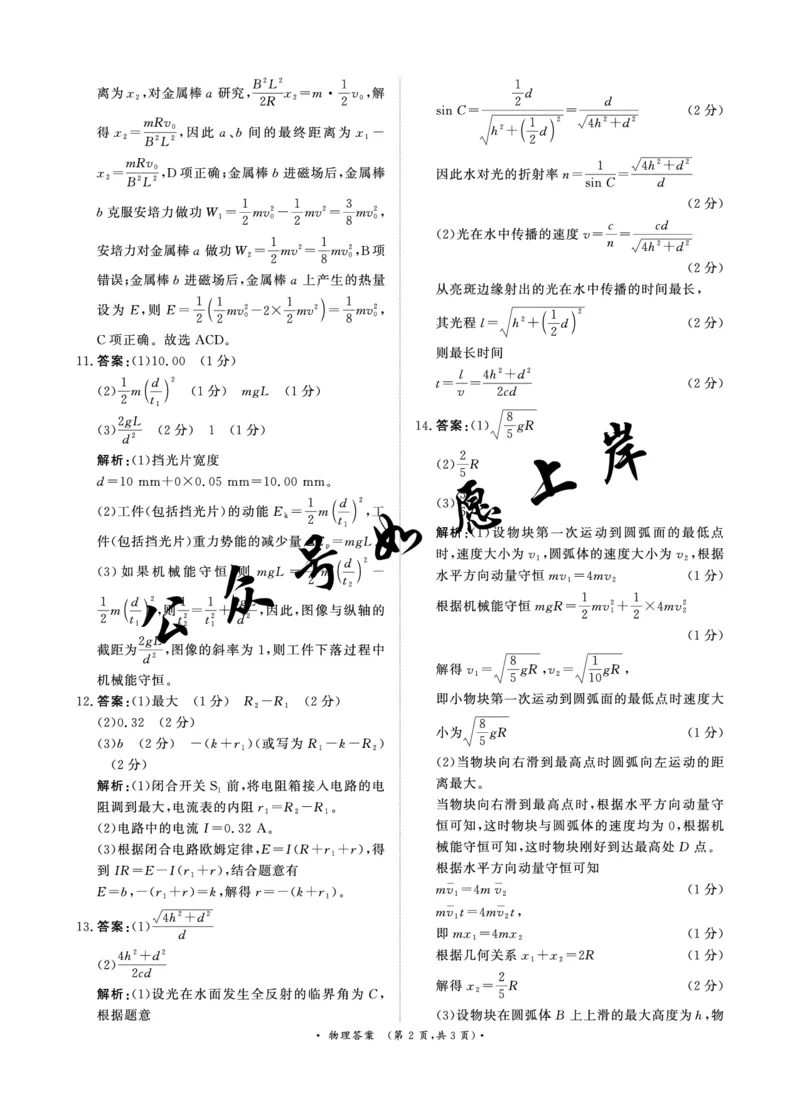 离为x₂,对金属棒a研究,B²L²/2R x₂=m·1/2 v₀,解
得x₂=mRv₀/B²L²,因此a、b间的最终距离为x₁-
x₂=mRv₀/B²L²,D项正确;金属棒b进磁场后,金属棒
b克服安培力做功W₁=1/2 mv₀²-1/2 mv²=3/8 mv₀²,
安培力对金属棒a做功W₂=1/2 mv²=1/8 mv₀²,B项
错误;金属棒b进磁场后,金属棒a上产生的热量
设为E,则E=1/2(1/2 mv₀²-2×1/2 mv²)=1/8 mv₀²,
C项正确。故选ACD。
11.答案:(1)10.00 (1分)
(2)1/2 m(d/t₁)² (1分) mgL (1分)
(3)2gL/d² (2分) 1 (1分)
解析:(1)挡光片宽度
d=10 mm+0×0.05 mm=10.00 mm。
(2)工件(包括挡光片)的动能Eₖ=1/2 m(d/t₁)²,工
件(包括挡光片)重力势能的减少量 =mgL
(3)如果机械能守恒,则mgL=1/2 m(d/t₂)²-
1/2 m(d/t₁)²,则1/t₂²=1/t₁²+ /d²,因此,图像与纵轴的
截距为2gL/d²,图像的斜率为1,则工件下落过程中
机械能守恒。
12.答案:(1)最大 (1分) R₂-R₁ (2分)
(2)0.32 (2分)
(3)b (2分) -(k+r₁)(或写为R₁-k-R₂)
(2分)
解析:(1)闭合开关S₁前,将电阻箱接入电路的电
阻调到最大,电流表的内阻r₁=R₂-R₁。
(2)电路中的电流I=0.32 A。
(3)根据闭合电路欧姆定律,E=I(R+r₁+r),得
到IR=E-I(r₁+r),结合题意有
E=b,-(r₁+r)=k,解得r=-(k+r₁)。
13.答案:(1)√(4h²+d²)/d
(2)(4h²+d²)/2cd
解析:(1)设光在水面发生全反射的临界角为C,
根据题意
sin C=(1/2 d)/√(h²+(1/2 d)²)=d/√(4h²+d²) (2分)
因此水对光的折射率n=1/sin C=√(4h²+d²)/d
(2分)
(2)光在水中传播的速度v=c/n=cd/√(4h²+d²)
(2分)
从亮斑边缘射出的光在水中传播的时间最长,
其光程l=√(h²+(1/2 d)²) (2分)
则最长时间
t=l/v=(4h²+d²)/2cd (2分)
14.答案:(1)√(8/5 gR)
(2)2/5 R
(3)
解析:(1)设物块第一次运动到圆弧面的最低点
时,速度大小为v₁,圆弧体的速度大小为v₂,根据
水平方向动量守恒mv₁=4mv₂ (1分)
根据机械能守恒mgR=1/2 mv₁²+1/2×4mv₂²
(1分)
解得v₁=√(8/5 gR),v₂=√(1/10 gR),
即小物块第一次运动到圆弧面的最低点时速度大
小为√(8/5 gR) (1分)
(2)当物块向右滑到最高点时圆弧向左运动的距
离最大。
当物块向右滑到最高点时,根据水平方向动量守
恒可知,这时物块与圆弧体的速度均为0,根据机
械能守恒可知,这时物块刚好到达最高处D点。
根据水平方向动量守恒可知
mv̄₁=4mv̄₂ (1分)
mv̄₁t=4mv̄₂t,
即mx₁=4mx₂ (1分)
根据几何关系x₁+x₂=2R (1分)
解得x₂=2/5 R (2分)
(3)设物块在圆弧体B上上滑的最大高度为h,物
公众号如愿上岸
·物理答案 (第2页,共3页)·